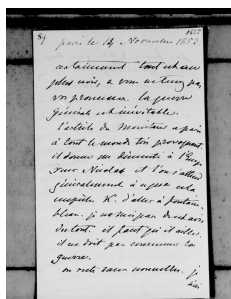 89
1853
paris le 14 Novembre 1853
certainement tout est au
plus noir, si vous ne tenez pas
vos promesses. la guerre
générale est inévitable.
l'article du Moniteur a paru
à tout le monde très provoquant,
il donne un démenti à l'Emp
Nicolas et l'on s'attend
généralement à ce que cela
empêche K. d'aller à fontaine
bleau. je ne suis pas de cet avis
du tout. il faut qu'il aille.
il ne doit pas
guerre.
on reste sans nouvelles. j